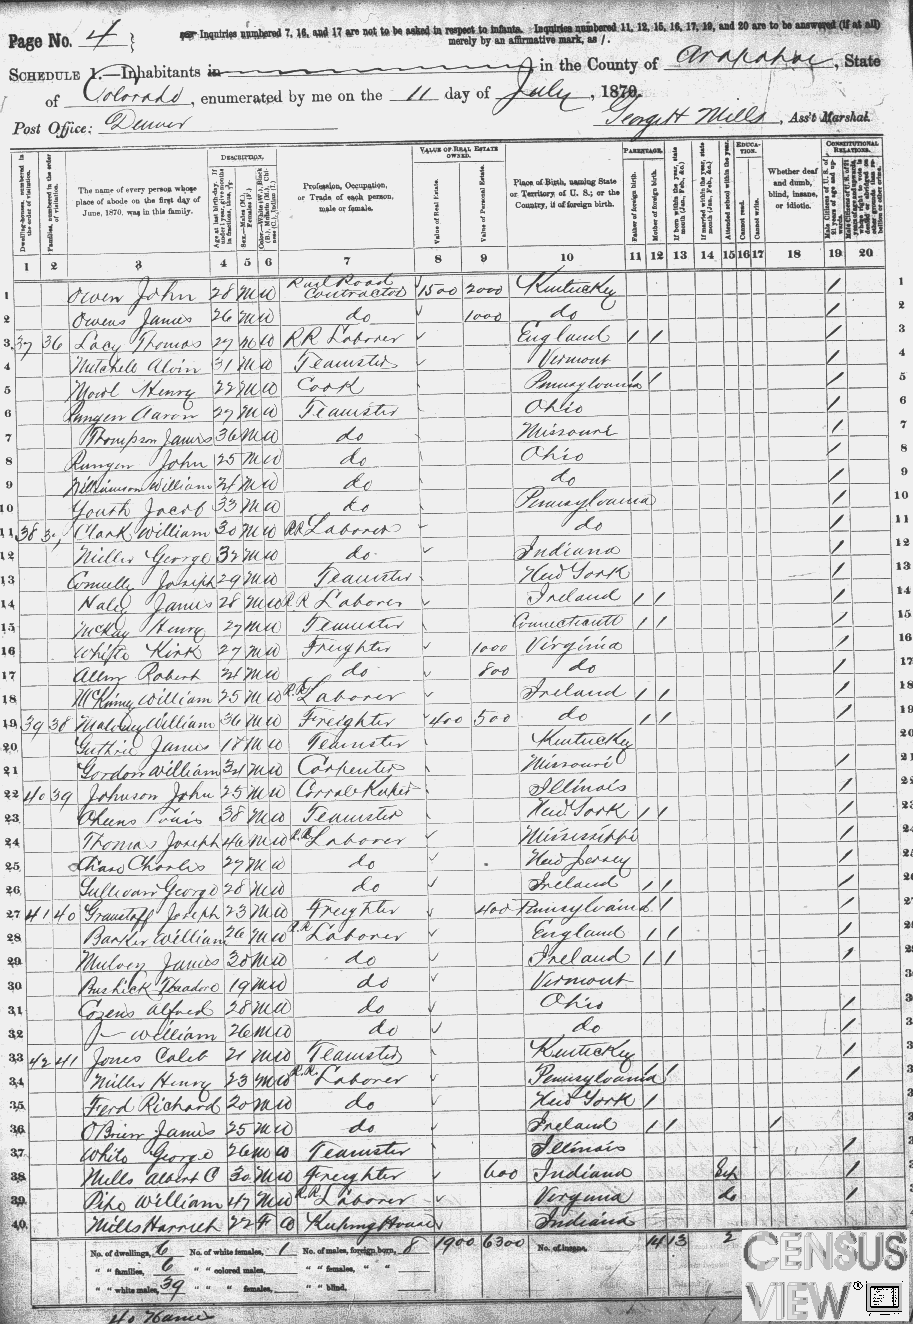 Page No. 4
Inquiries numbered 7, 16, and 17 are not to be asked in respect to infants. Inquiries numbered 11, 12, 15, 16, 17, 19, and 20 are to be answered (if at all)
merely by an affirmative mark, as /.
SCHEDULE 1.—Inhabitants in , in the County of Arapahoe, State
of Colorado, enumerated by me on the 11 day of July, 1870.
Post Office: Denver
George H Mills, Ass't Marshal.
Dwelling-houses, numbered in the order of visitation.
Families, numbered in the order of visitation.
The name of every person whose place of abode on the first day of June, 1870, was in this family.
DESCRIPTION.
Profession, Occupation, or Trade of each person, male or female.
VALUE OF REAL ESTATE OWNED.
Value of Real Estate.
Value of Personal Estate.
Place of Birth, naming State or Territory of U. S.; or the Country, if of foreign birth.
PARENTAGE.
Father of foreign birth.
Mother of foreign birth.
If born within the year, state month (Jan., Feb., &c.)
If married within the year, state month (Jan., Feb., &c.)
Attended school within the year.
EDUCATION.
Cannot read.
Cannot write.
Whether deaf and dumb, blind, insane, or idiotic.
CONSTITUTIONAL RELATIONS.
1 2 3 4 5 6 7 8 9 10 11 12 13 14 15 16 17 18 19 20
1 Owen John 28 M W Rail Road Contractor 1500 2000 Kentucky / 1
2 Owens James 26 M W do 1000 do / 2
3 37 36 Lacy Thomas 27 M W R R Laborer England / / / 3
4 Mitchell Alvin 31 M W Teamster Vermont / 4
5 Henry 22 M W Cook Pennsylvania / / / 5
6 Runyen Aaron 27 M W Teamster Ohio / 6
7 Thompson James 36 M W do Missouri / 7
8 Runyen John 25 M W do Ohio / 8
9 Williamson William 21 M W do do / 9
10 Youth Jacob 33 M W do Pennsylvania / 10
11 38 37 Clark William 30 M W R R Laborer do / 11
12 Miller George 32 M W do Indiana / 12
13 Joseph 29 M W Teamster New York / 13
14 Haley James 28 M W R R Laborer Ireland / / / 14
15 McKay Henry 27 M W Teamster Connecticutt / / / 15
16 White Kirk 27 M W Freighter 1000 Virginia / 16
17 Allen Robert 21 M W do 800 do / 17
18 McKinney William 25 M W R.R. Laborer Ireland / / / 18
19 39 38 Maloney William 36 M W Freighter 400 500 do / / / 19
20 Guthrie James 18 M W Teamster Kentucky 20
21 Gordon William 34 M W Carpenter Missouri / 21
22 40 39 Johnson John 25 M W Corral Keeper Illinois / 22
23 Louis 38 M W Teamster New York / / / 23
24 Thomas Joseph 46 M W R.R. Laborer Mississippi /
25 Chase Charles 27 M W do New Jersey /
26 Sullivan George 28 M W do Ireland / / /
27 41 40 Joseph 23 M W Freighter 400 Pennsylvania / / /
28 Barker William 26 M W R.R. Laborer England / / /
29 Mulvey James 30 M W do Ireland / / /
30 Theodore 19 M W do Vermont
31 Cozens Alfred 28 M W do Ohio /
32 William 26 M W do do /
33 42 41 Jones Caleb 21 M W Teamster Kentucky /
34 Miller Henry 23 M W R.R. Laborer Pennsylvania / / /
35 Ferd Richard 20 M W do New York /
36 OBrien James 25 M W do Ireland / / /
37 White George 26 M W Teamster Illinois /
38 Mills Albert C 30 M W Freighter 600 Indiana /
39 Pipe William 47 M W R.R. Laborer Virginia do /
40 Mills Harriet 22 F W Keeping House Indiana
No. of dwellings, 6 No. of white females, 1 No. of males, foreign born, 8 1900 6300 No. of insane, 14 13 2
" " families, 6 " " colored males, " " females, " "
" " white males, 39 " " " females, " " blind,
CENSUS
VIEW®